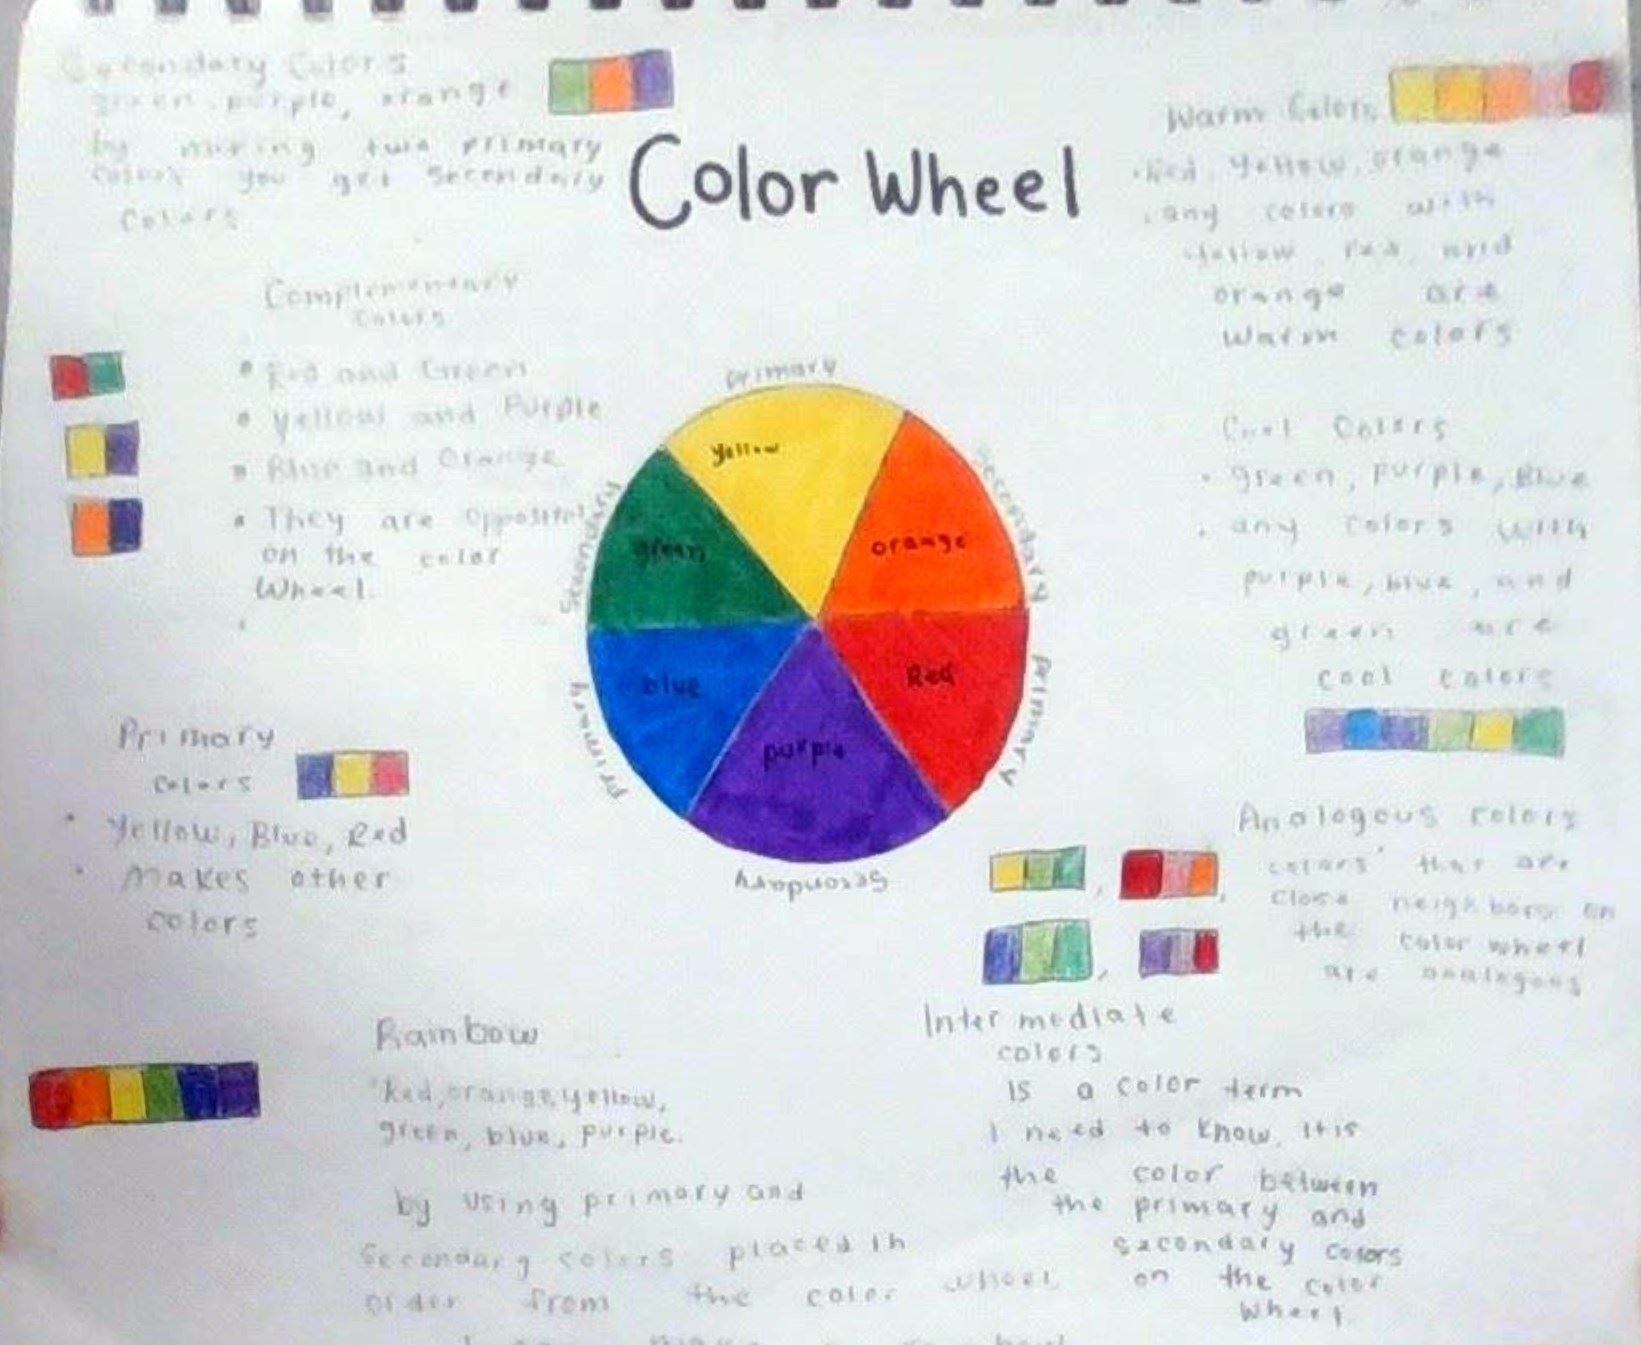 Secondary Colors
green, purple, orange
by mixing two primary
colors you get Secondary
Colors
Color Wheel
Warm Colors
Red, Yellow, orange
any colors with
Yellow, red, and
orange are
Warm colors
Complementary
Colors
Red and Green
Yellow and Purple
Blue and Orange
They are opposite
on the color
Wheel.
Cool Colors
green, purple, Blue
any colors with
purple, blue, and
green are
cool colors
primary
Secondary
primary
Secondary
primary
Secondary
yellow
orange
Red
purple
blue
green
Primary
Colors
Yellow, Blue, Red
Makes other
colors
Analogous colors
colors that are
close neighbors on
the color wheel
are analogous
Rainbow
Red, orange, yellow,
green, blue, purple.
by using primary and
Secondary colors placed in
order from the color wheel
Intermediate
colors
Is a color term
I need to know. It is
the color between
the primary and
secondary colors
on the color
wheel.